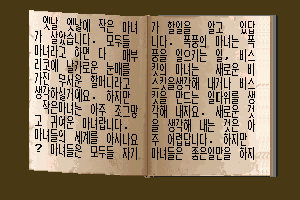 옛날 옛날에 작은 마녀
가 살았습니다. 모두들
마녀라고 하면 다 매부
리코에 날카로운 눈매를
가진 무서운 할머니라고
생각하실거예요. 하지만
작은마녀는 아주 조그맣
고 귀여운 마녀랍니다.
마녀들의 세계를 아시나요
? 마녀들은 모두들 자기
가 할일을 알고 있답
니다. 폭풍의 마녀는 폭
풍을 일으키는 일, 비소
짓의 마녀는 새로운 비
소짓을생각해 내거나 비소
짓을 만드는 일다위를 생
각해 내지요. 새로운 것
을 생각해 내는 것은 아
주 어렵답니다. 하지만
마녀들은 좋은일만을 하지